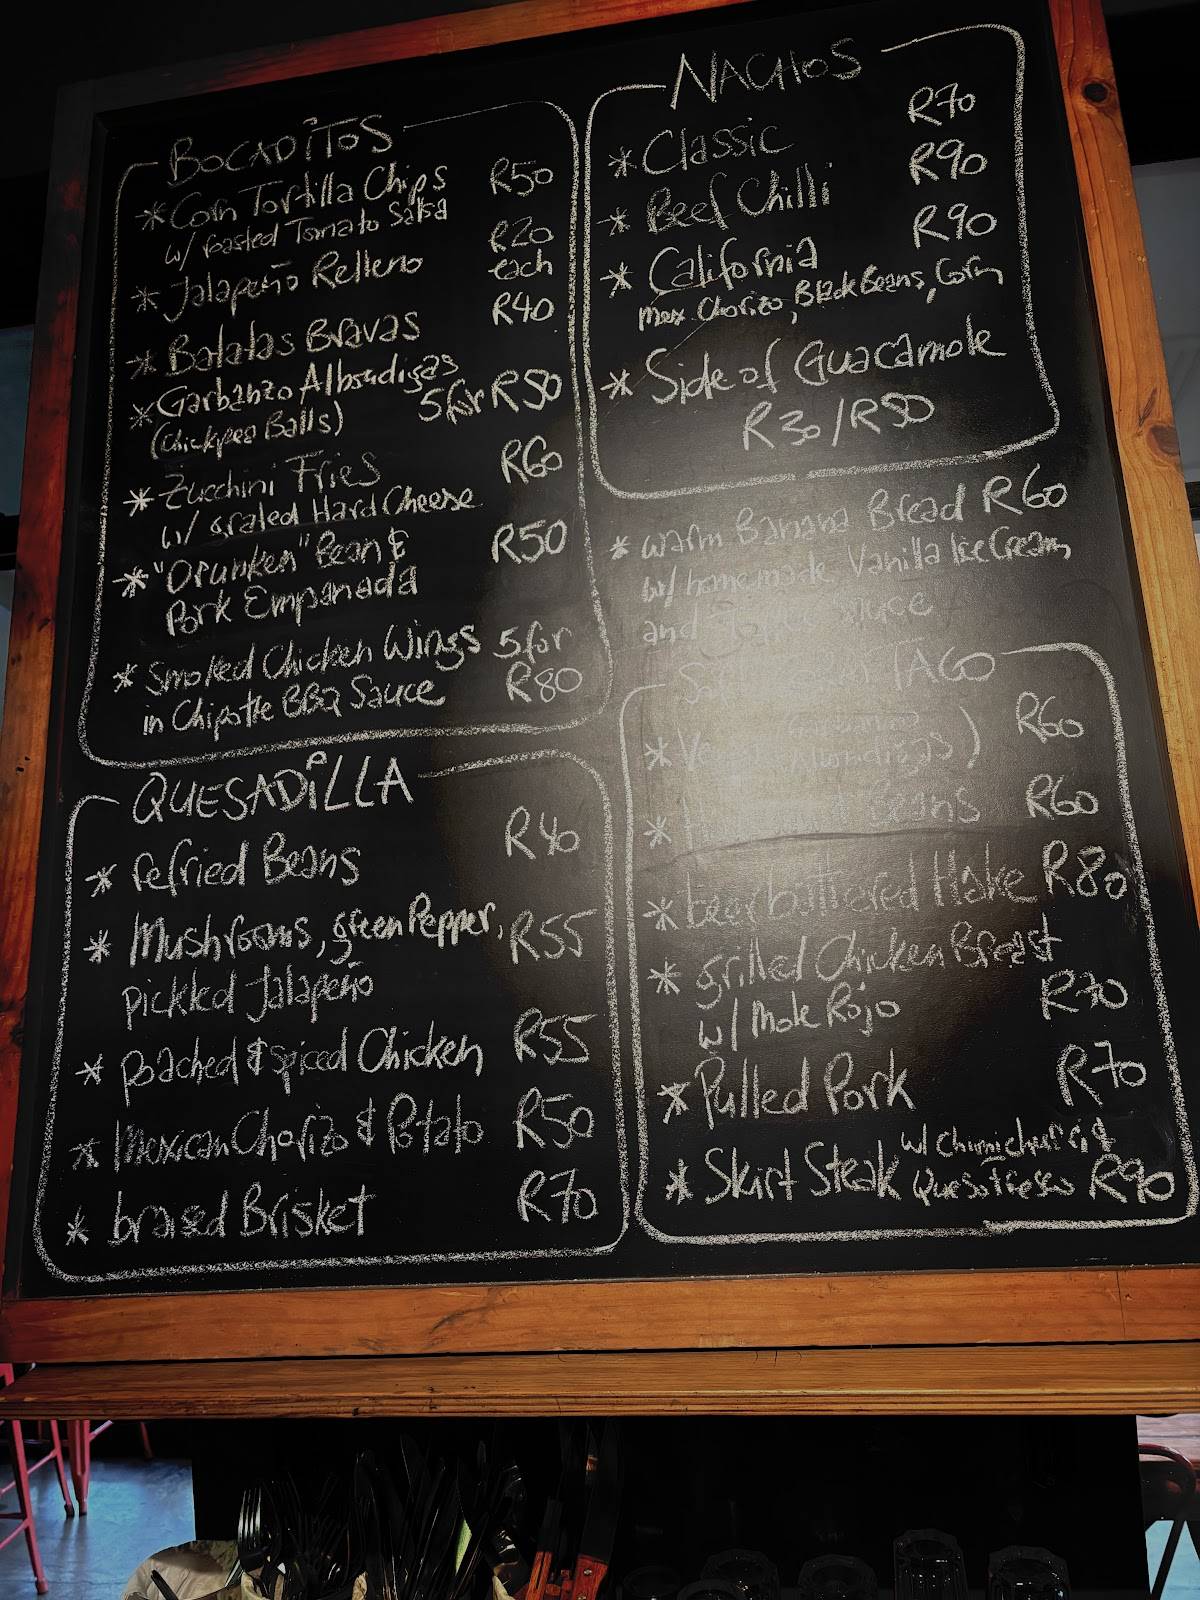 BOCADITOS
* Corn Tortilla Chips R50
w/ roasted Tomato Salsa
* Jalapeño Relleno R20 each
* Batatas Bravas R40
* Garbanzo Albondigas
(Chickpea Balls) 5 for R50
* Zucchini Fries R60
w/ grated Hard Cheese
* "Drunken" Bean & R50
Pork Empanada
* Smoked Chicken Wings 5 for
in Chipotle BBQ Sauce R80
QUESADiLLA
* refried Beans R40
* Mushrooms, green Pepper, R55
pickled Jalapeño
* poached & spiced Chicken R55
* Mexican Chorizo & Potato R50
* brased Brisket R70
NACHOS
* Classic R70
* Beef Chilli R90
* California R90
mex. Chorizo, Black Beans, Corn
* Side of Guacamole
R30/R50
* warm Banana Bread R60
w/ homemade Vanilla Ice Cream
and Sauce
TACO
* R60
* Beans R60
* beer battered Hake R80
* grilled Chicken Breast
w/ Mole Rojo R70
* Pulled Pork R70
* Skirt Steak w/ Chimichurri &
Queso Fresco R90